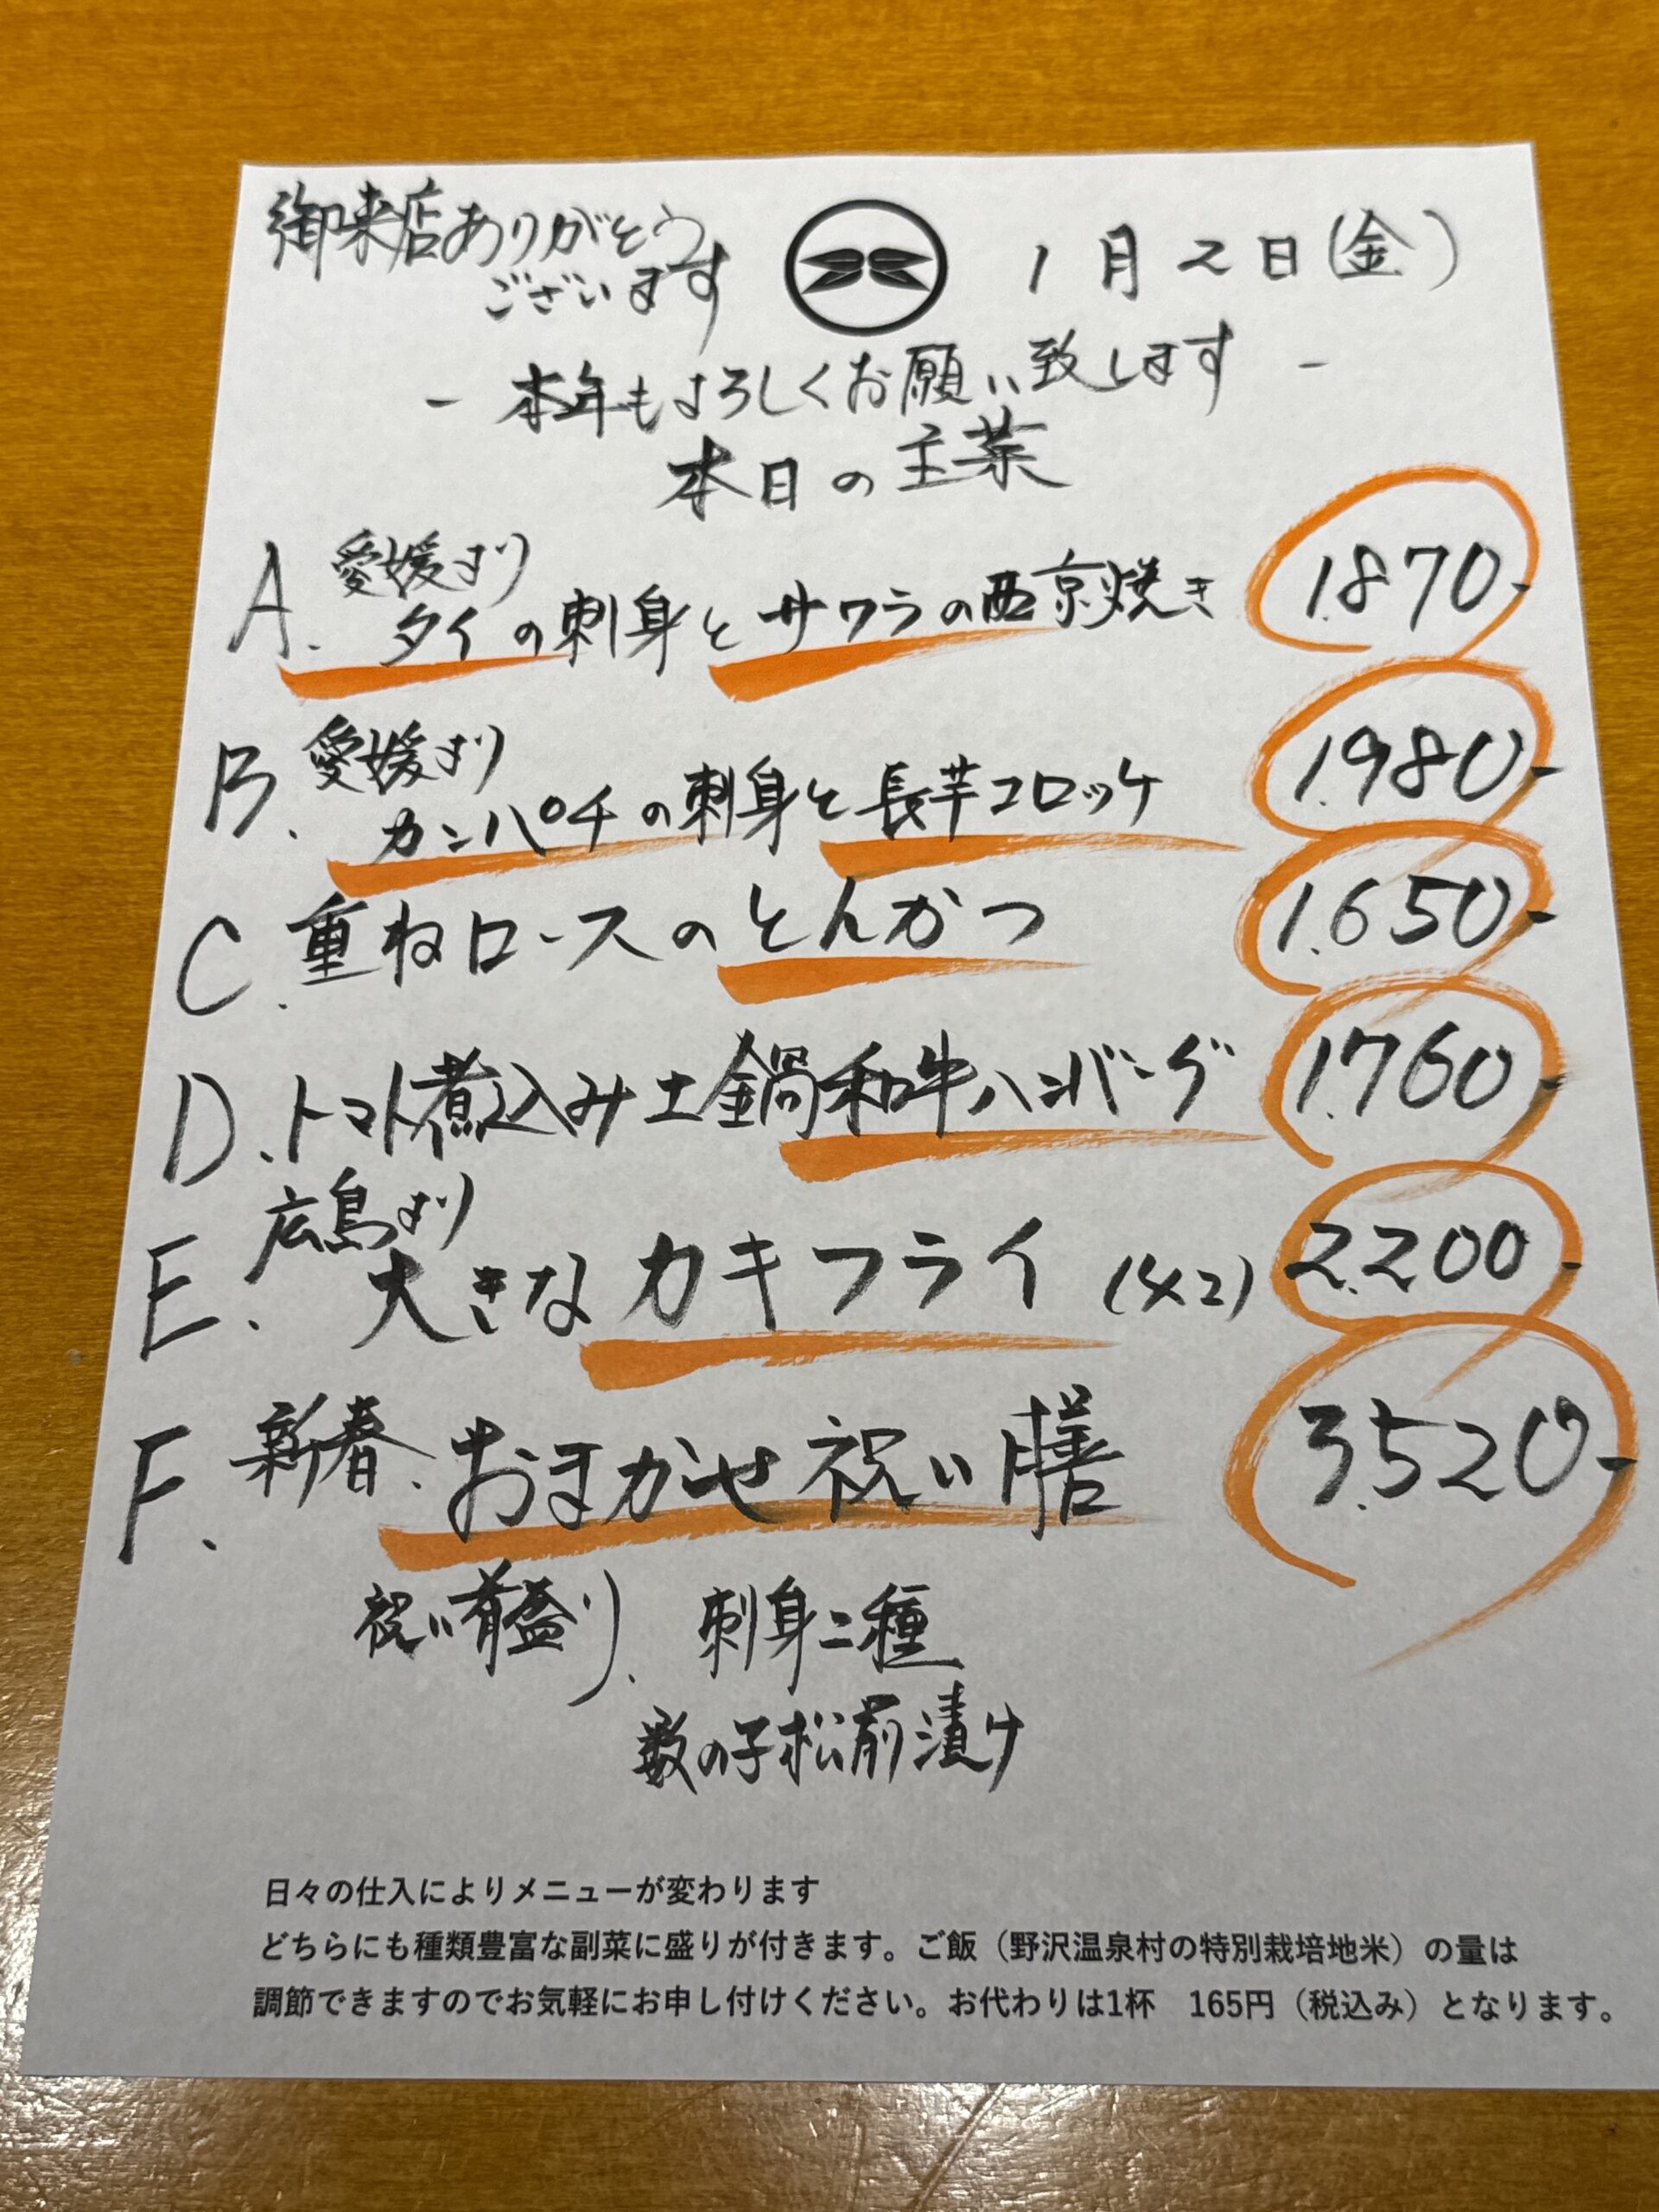 御来店ありがとう
ございます
1月2日(金)
- 本年もよろしくお願い致します -
本日の主菜
A. 愛媛より
タイの刺身とサワラの西京焼き 1.870-
B. 愛媛より
カンパチの刺身と長芋コロッケ 1.980-
C. 重ねロースのとんかつ 1.650-
D. トマト煮込み土鍋和牛ハンバーグ 1.760-
E. 広島より
大きなカキフライ (4コ) 2.200-
F. 新春、おまかせ祝い膳 3.520-
祝い肴盛り、刺身二種
数の子松前漬け
日々の仕入によりメニューが変わります
どちらにも種類豊富な副菜に盛りが付きます。ご飯（野沢温泉村の特別栽培地米）の量は
調節できますのでお気軽にお申し付けください。お代わりは1杯 165円（税込み）となります。